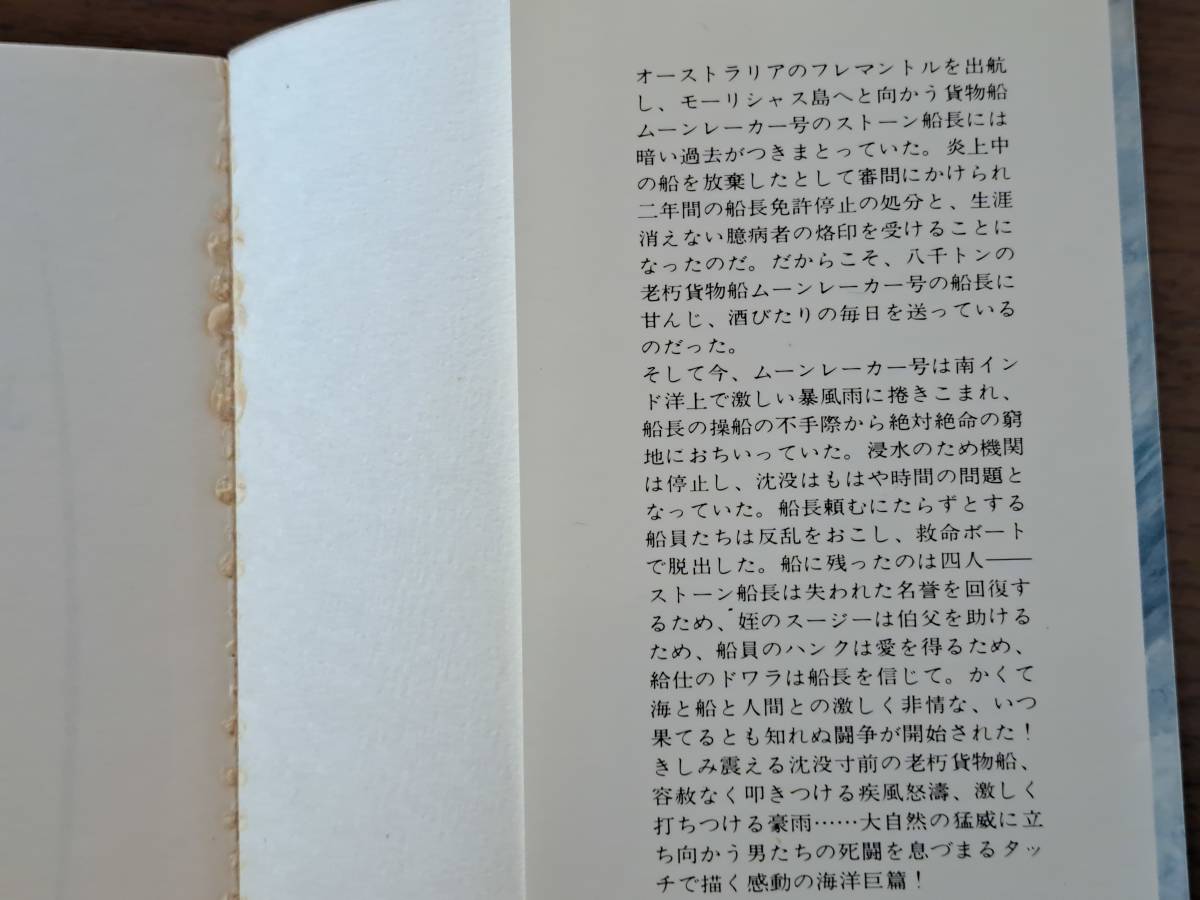 オーストラリアのフレマントルを出航
し、モーリシャス島へと向かう貨物船
ムーンレーカー号のストーン船長には
暗い過去がつきまとっていた。炎上中
の船を放棄したとして審問にかけられ
二年間の船長免許停止の処分と、生涯
消えない臆病者の烙印を受けることに
なったのだ。だからこそ、八千トンの
老朽貨物船ムーンレーカー号の船長に
甘んじ、酒びたりの毎日を送っている
のだった。
そして今、ムーンレーカー号は南イン
ド洋上で激しい暴風雨に捲きこまれ、
船長の操船の不手際から絶対絶命の窮
地におちいっていた。浸水のため機関
は停止し、沈没はもはや時間の問題と
なっていた。船長頼むにたらずとする
船員たちは反乱をおこし、救命ボート
で脱出した。船に残ったのは四人——
ストーン船長は失われた名誉を回復す
るため、姪のスージーは伯父を助ける
ため、船員のハンクは愛を得るため、
給仕のドワラは船長を信じて。かくて
海と船と人間との激しく非情な、いつ
果てるとも知れぬ闘争が開始された！
きしみ震える沈没寸前の老朽貨物船、
容赦なく叩きつける疾風怒濤、激しく
打ちつける豪雨……大自然の猛威に立
ち向かう男たちの死闘を息づまるタッ
チで描く感動の海洋巨篇！